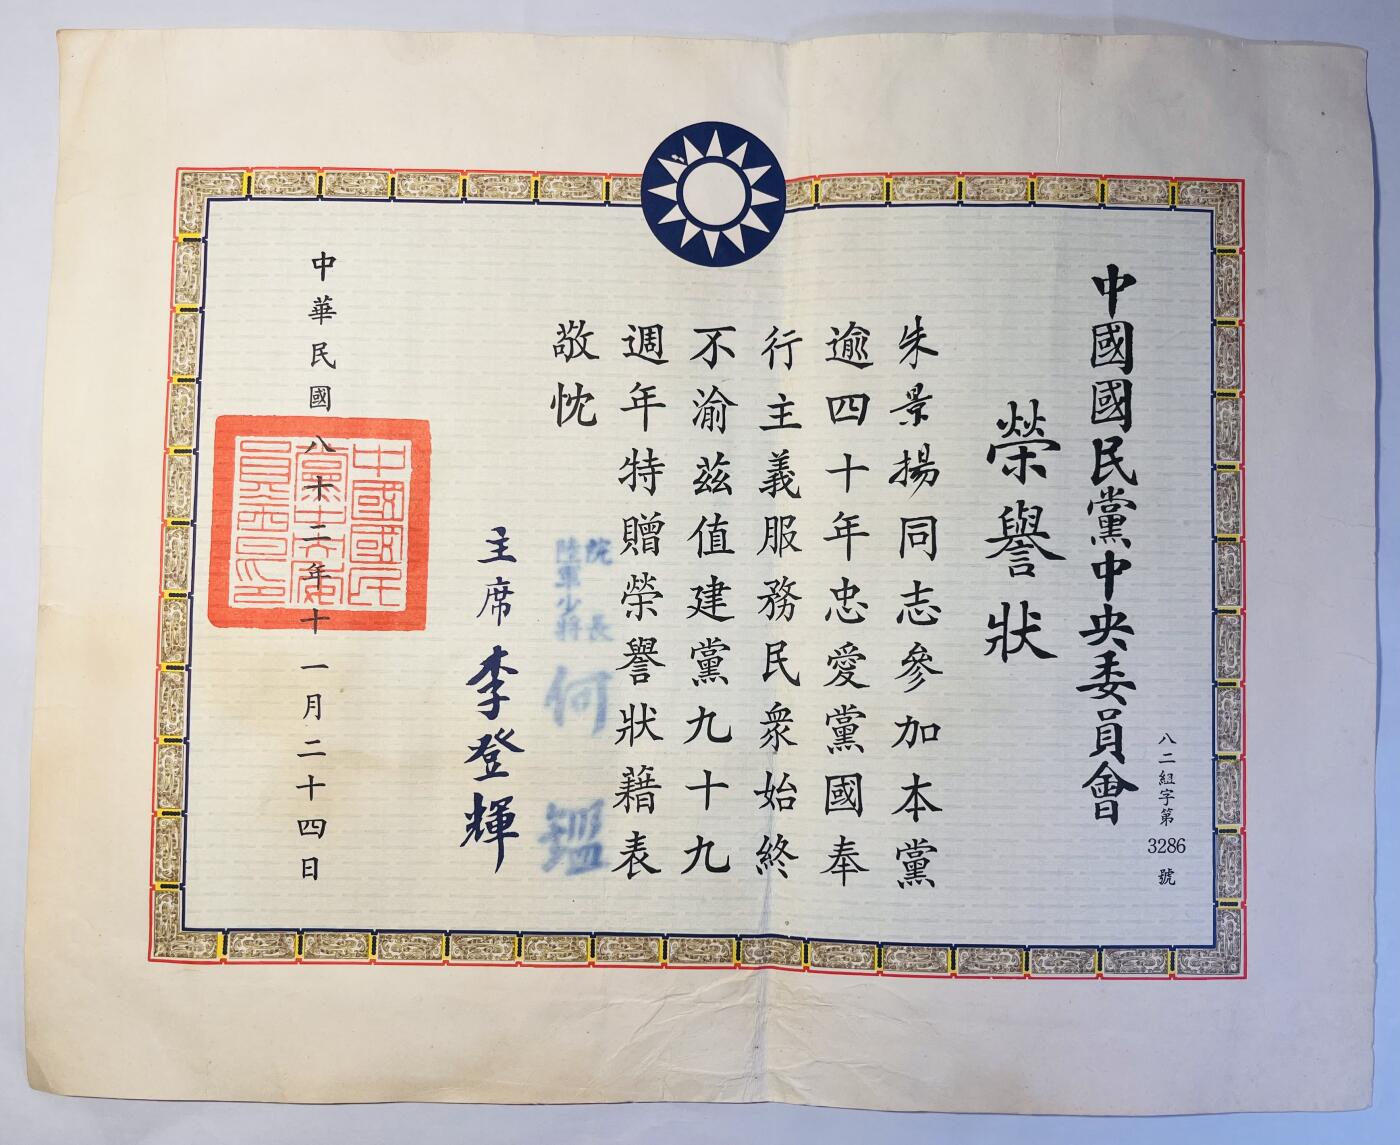 中國國民黨中央委員會
榮譽狀
八二組字第3286號
朱景揚同志參加本黨
逾四十年忠愛黨國奉
行主義服務民衆始終
不渝茲值建黨九十九
週年特贈榮譽狀藉表
敬忱
院長
陸軍少將
何鎾
主席李登輝
中華民國八十二年十一月二十四日
中國國民
黨中央委
員會之印